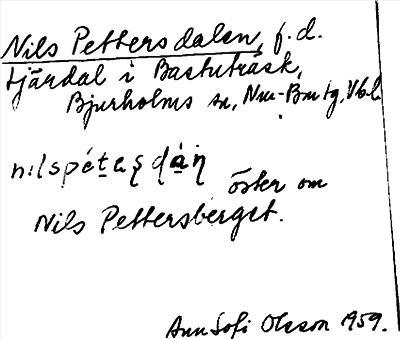 Nils Pettersdalen, f.d.
tjärdal i Bastuträsk,
Bjurholms sn, Nm-Bm tg, Vbl.
nilspétaṣ ḍáṇ
öster om
Nils Pettersberget.
Ann Sofi Olsson 1959.